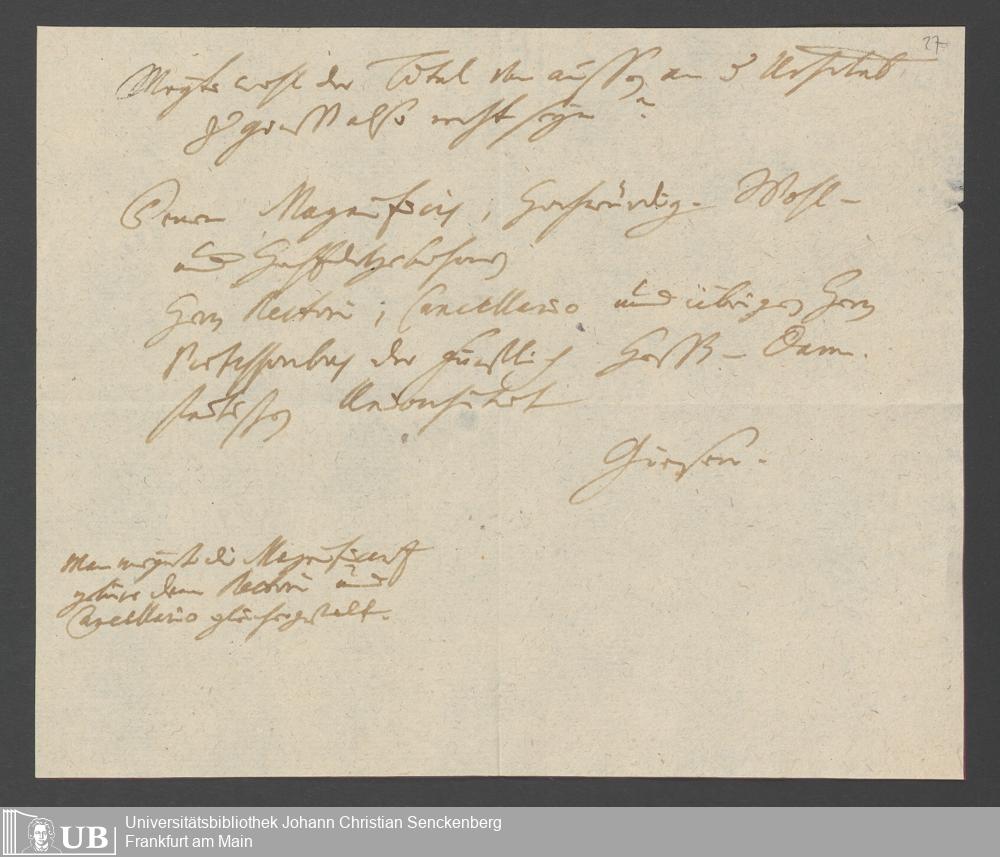 27
Mögte wohl der Titel von aussen an d
also recht seyn?
Denen Magnificis, Hochwürdig- Wohl-
und
Herrn Rectori, Cancellario und übrigen Herrn
Professoribus der Fürstlich Hess- Darm-
städtischen Universität
Giessen.
Man meynt die Magnificenz
gebüre dem Rectori und
Cancellario gleichergestalt.
UB
Universitätsbibliothek Johann Christian Senckenberg
Frankfurt am Main